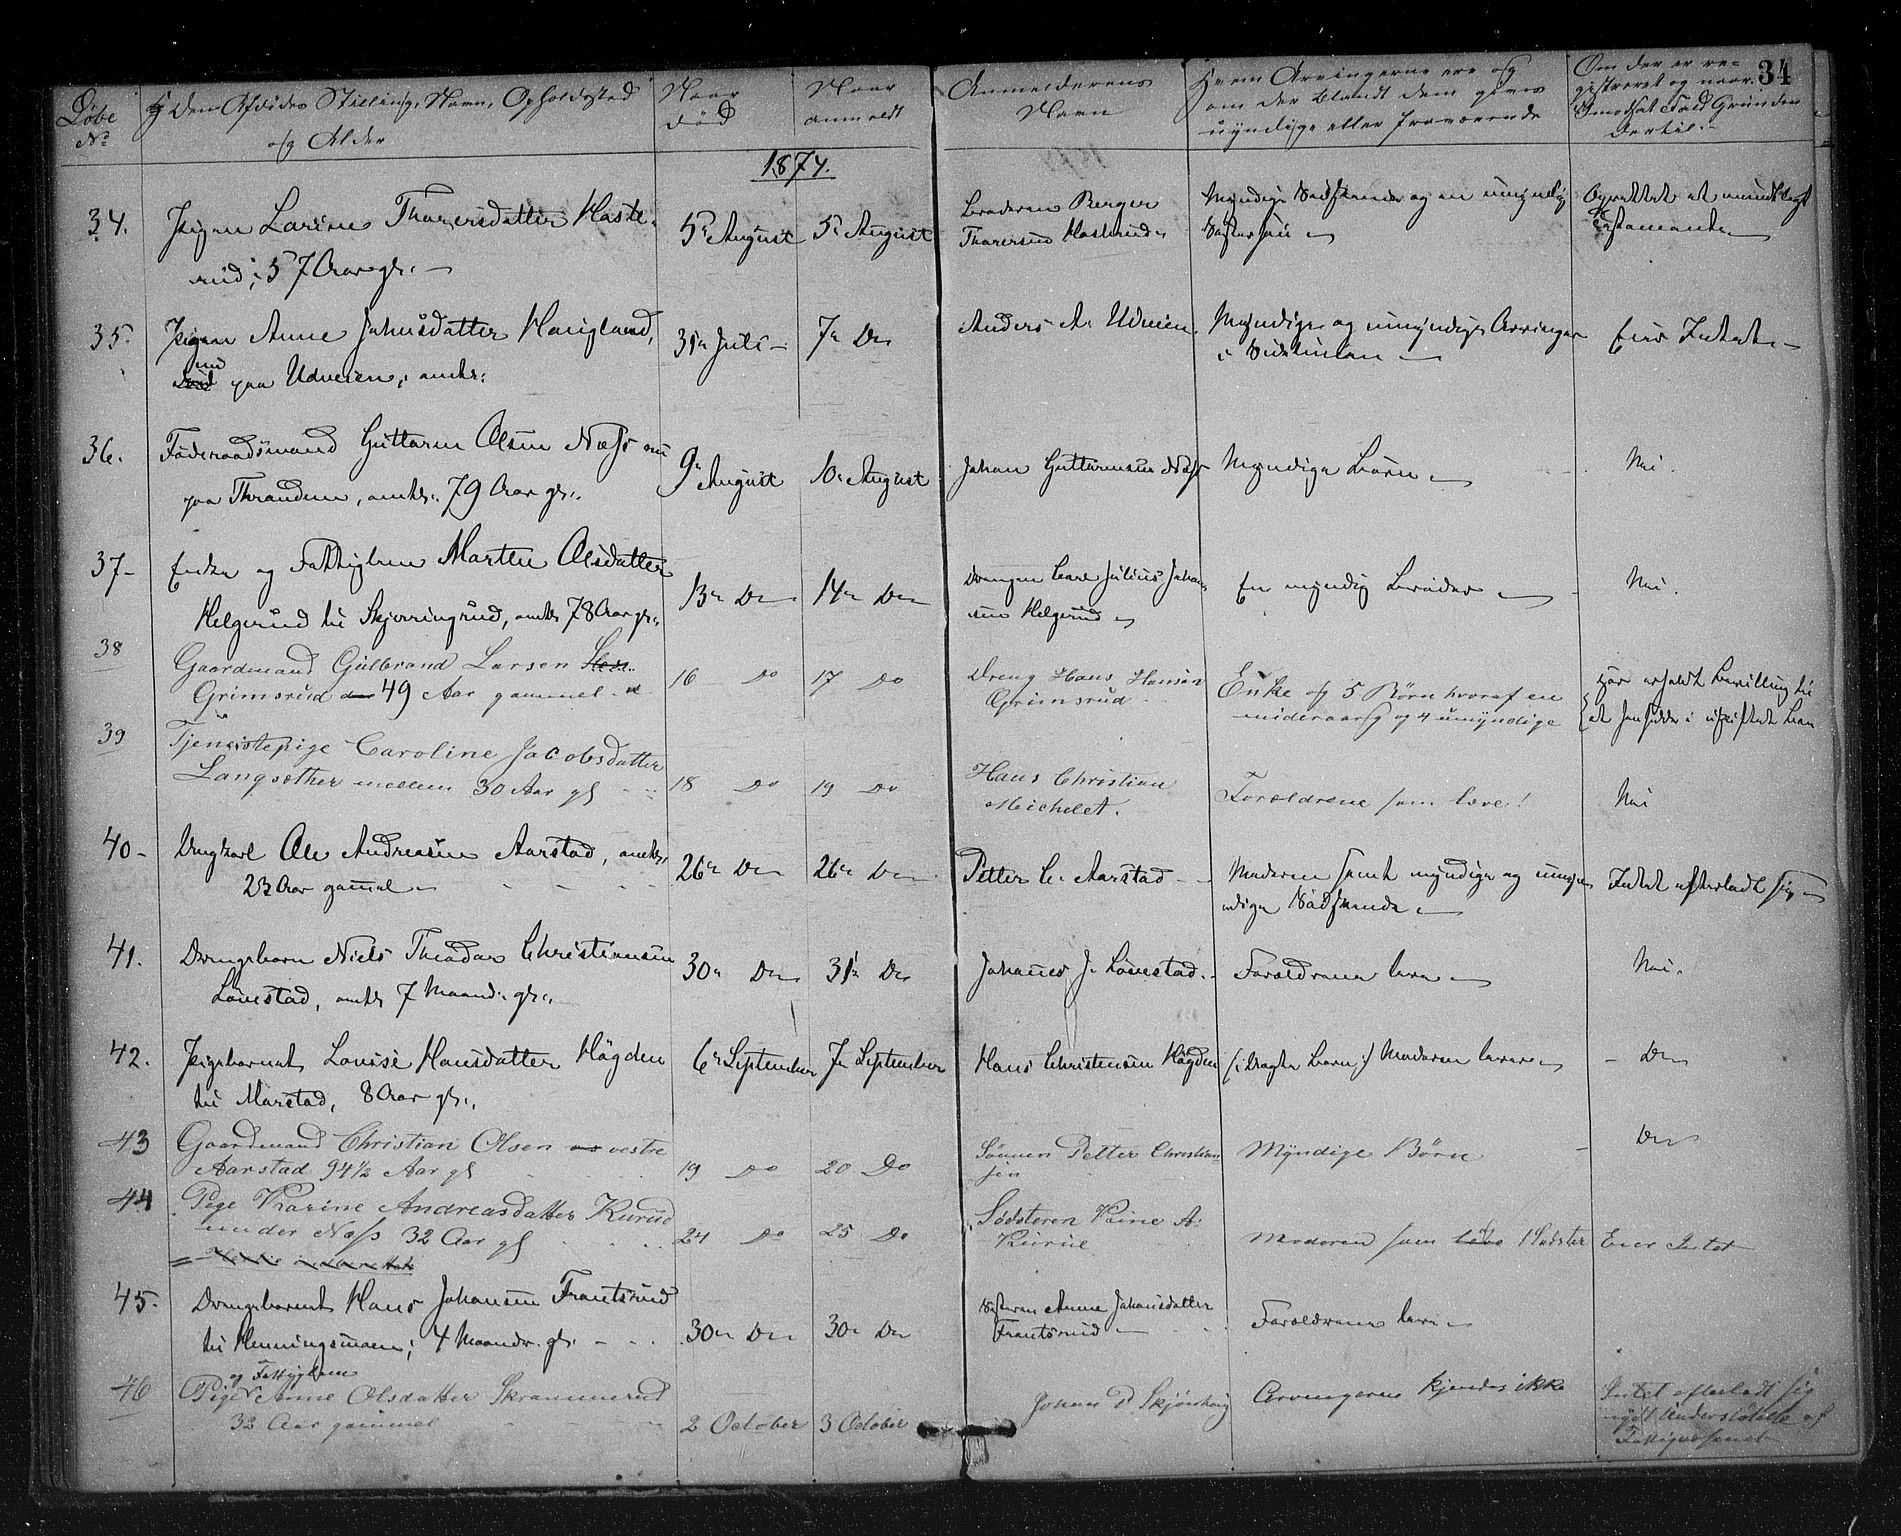 34
Løbe No
Den Afdødes Stilling, Navn, Opholdssted
og Alder
Naar død
Naar anmeldt
Anmelderens Navn
Hvem Arvingerne ere og
om der blandt dem gives
umyndige eller fraværende
Om der er re-
gistreret og naar.
Imodsat Fald Grunden
dertil.
1874.
34. Pigen Larine Thorersdatter Haste-
rud, 57 Aar gl.
5te August
5te August
Broderen Berger
Thorersen Hasterud
Myndige Sødskende og en umyndig
Søstersøn
Oprettet et mundtligt
Testamente
35. Pigen Anne Johnsdatter Haugland,
paa Udveien, omtr.
31te Juli
7de Do
Anders A. Udveien
Myndige og umyndige Arvinger
i Sidelinien
Eier Intet
36. Føderaadsmand Guttorm Olsen Næss
paa Thranden, omtr. 79 Aar gl.
9de August
10de August
Johan Guttormsen Næss
Myndige Børn
Nei.
37 Enke og Fattiglem Marthe Olsdatter
Helgerud til Skjerringrud, omtr. 78 Aar gl.
13de Do
14de Do
Drengen Carl Julius Johan-
sen Helgerud
En myndig Broder
Nei.
38 Gaardmand Gulbrand Larsen
Grimsrud 49 Aar gammel
16 Do
17 Do
Dreng Hans Hansen
Grimsrud
Enke og 5 Børn hvoraf en
mideraarig og 4 umyndige
Har erholdt Bevilling til
at hensidde i uskiftet Bo
39 Tjenestepige Caroline Jacobsdatter
Langsether mellem 30 Aar gl
18 Do
19 Do
Hans Christian
Michelet.
Forældrene som leve!
Nei
40 Ungkarl Ole Andreasen Aarstad, omtr.
23 Aar gammel
26de Do
26de Do
Petter C. Aarstad
Moderen samt myndige og umyn-
dige Sødskende
Intet efterladt sig
41. Drengebarn Niels Theodor Christiansen
Lønestad, omtr 7 Maaned. gl.
30te Do
31te Do
Johannes J. Lønestad
Forældrene leve
Nei.
42. Pigebarnet Louise Hansdatter Høgden
til Marstad, 8 Aar gl.
6te September
7de September
Hans Christensen Høgden
(: Uægte Barn :) Moderen lever
Do
43 Gaardmand Christian Olsen vestre
Aarstad 94½ Aar gl
19 Do
20 Do
Sønnen Petter Christian-
sen
Myndige Børn
Do
44 Pige Karine Andreasdatter Kurud
under Næss 32 Aar gl
24 Do
25 Do
Sødsteren Karine A.
Moderen som 1 Sødster
Eier Intet
45. Drengebarnet Hans Johansen Frantsrud
til Henningsmoen; 4 Maander gl.
30te Do
30te Do
Søsteren Anne Johansdatter
Frantsrud
Forældrene leve
46 Pige og Fattiglem Anne Olsdatter Skrammerud
32 Aar gammel
2 October
3 October
Johan Skjønhaug
Arvingerne kjendes ikke
Intet efterladt sig
nydt Understøttelse af
Fattigvæsenet